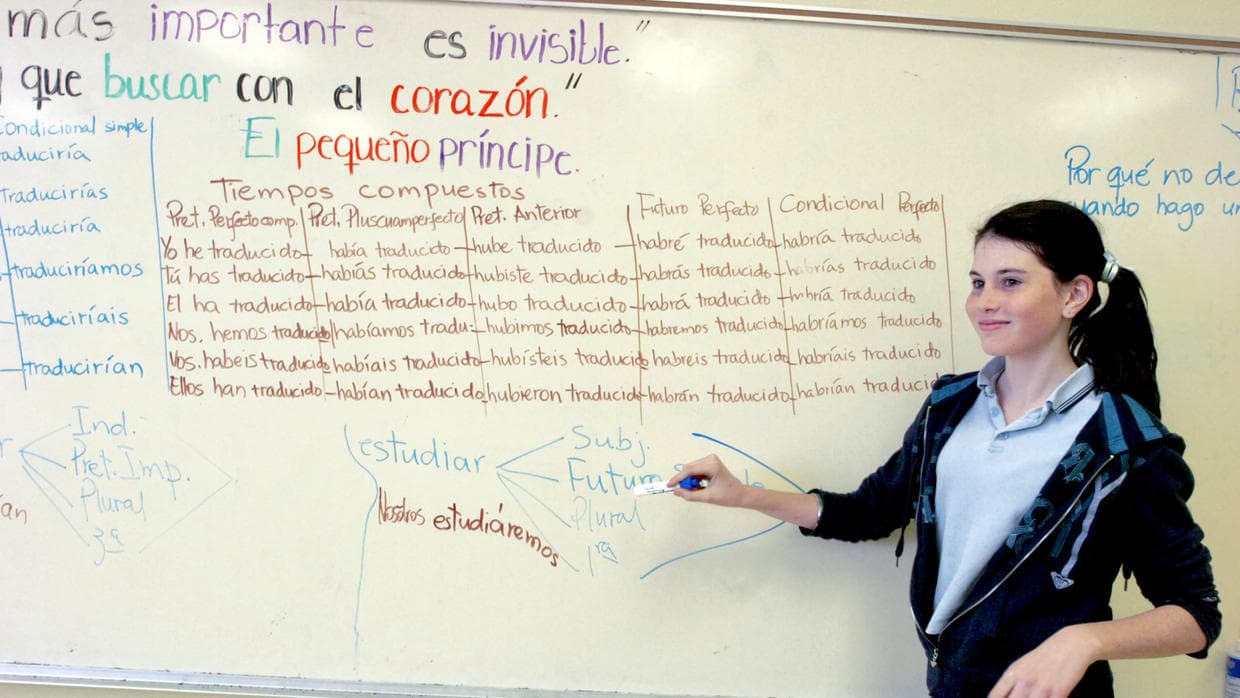 más importante es invisible."
que buscar con el corazón."
El pequeño príncipe.
Condicional simple
aduciría
Traducirías
traduciría
traduciríamos
traduciríais
traducirían
Tiempos compuestos
Pret. Perfecto comp. Pret. Pluscuamperfecto Pret. Anterior Futuro Perfecto Condicional Perfecto
Yo he traducido había traducido hube traducido habré traducido habría traducido
Tú has traducido habías traducido hubiste traducido habrás traducido habrías traducido
El ha traducido había traducido hubo traducido habrá traducido traducido
Nos. hemos traducido habíamos tradu: hubimos traducido habremos traducido habríamos traducido
Vos. habeis traducido habíais traducido hubísteis traducido habreis traducido habríais traducido
Ellos han traducido habían traducido hubieron traducido habrán traducido habrían traducid
Por qué no de
cuando hago un
Ind.
Pret. Imp.
Plural
3ª
estudiar
Subj.
Futuro
Plural
1ra
Nosotros estudiáremos